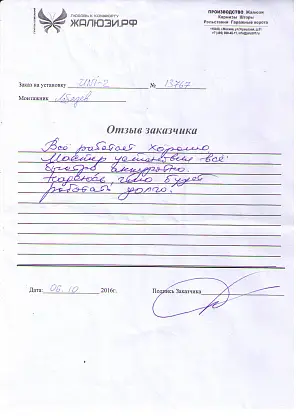 ПУТЕВКА К КОМФОРТУ
ЖАЛЮЗИ.РФ
ПРОИЗВОДСТВО Жалюзи
Карнизы Шторы
Рольставни Гаражные ворота
Заказ на установку № 13767
Монтажник
Отзыв заказчика
Всё работает хорошо
Мастер установил всё
быстро аккуратно.
Надеюсь, что будет
работать долго.
Дата: 06.10 2016г. Подпись Заказчика